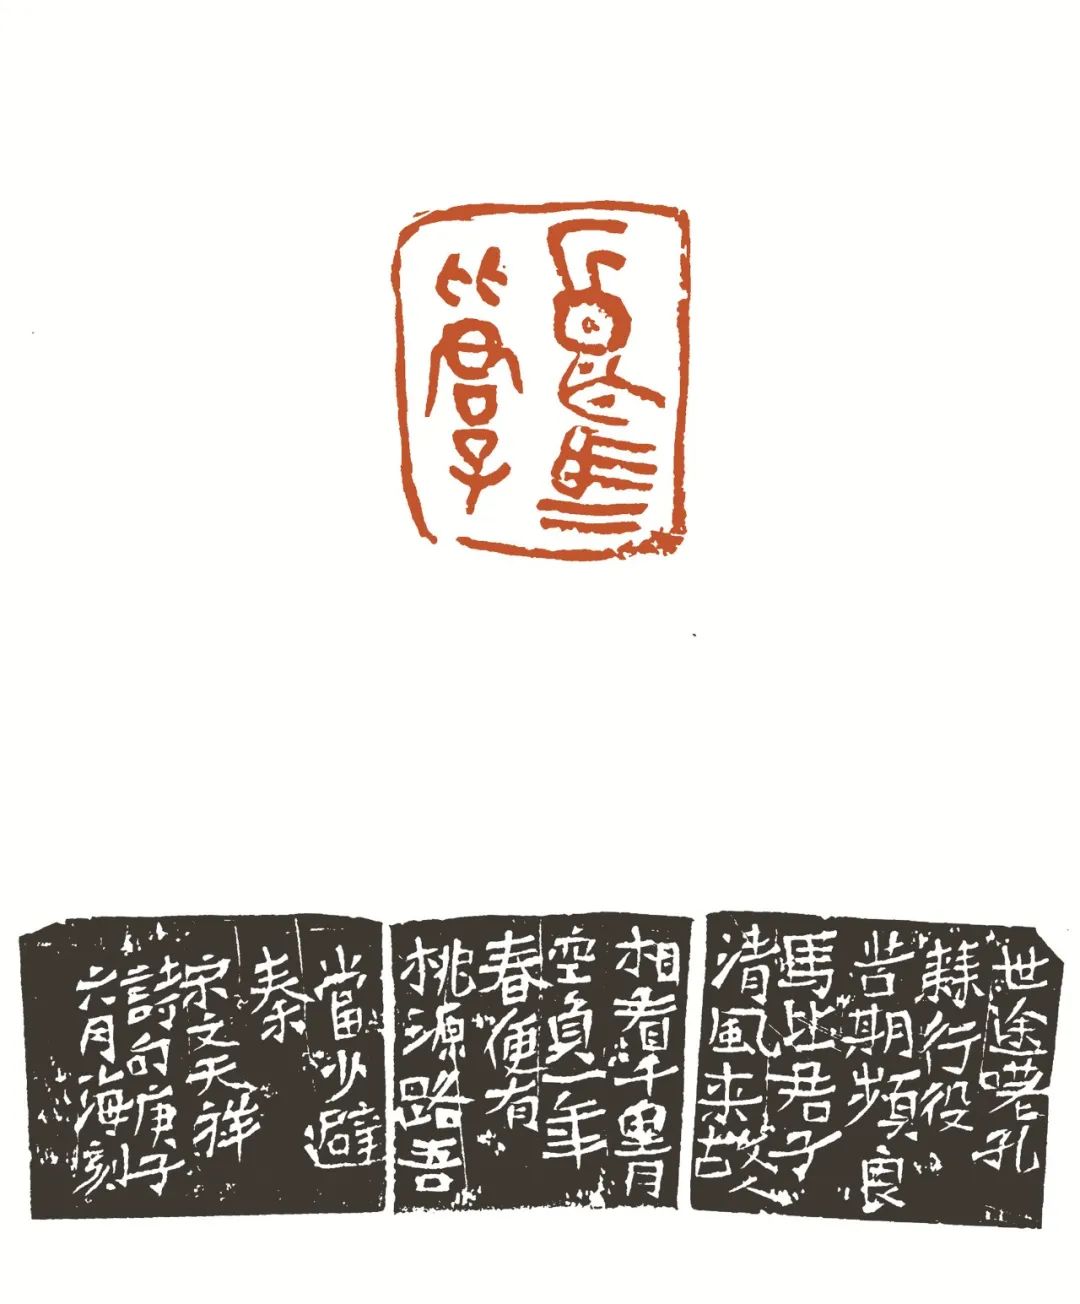 良馬
比君子
世途嗟孔
棘行役
苦期頻良
馬比君子
清風来故人
相看千里月
空負一年
春便有
桃源路吾
當少避
秦
宋文天祥
詩句庚子
六月海刻